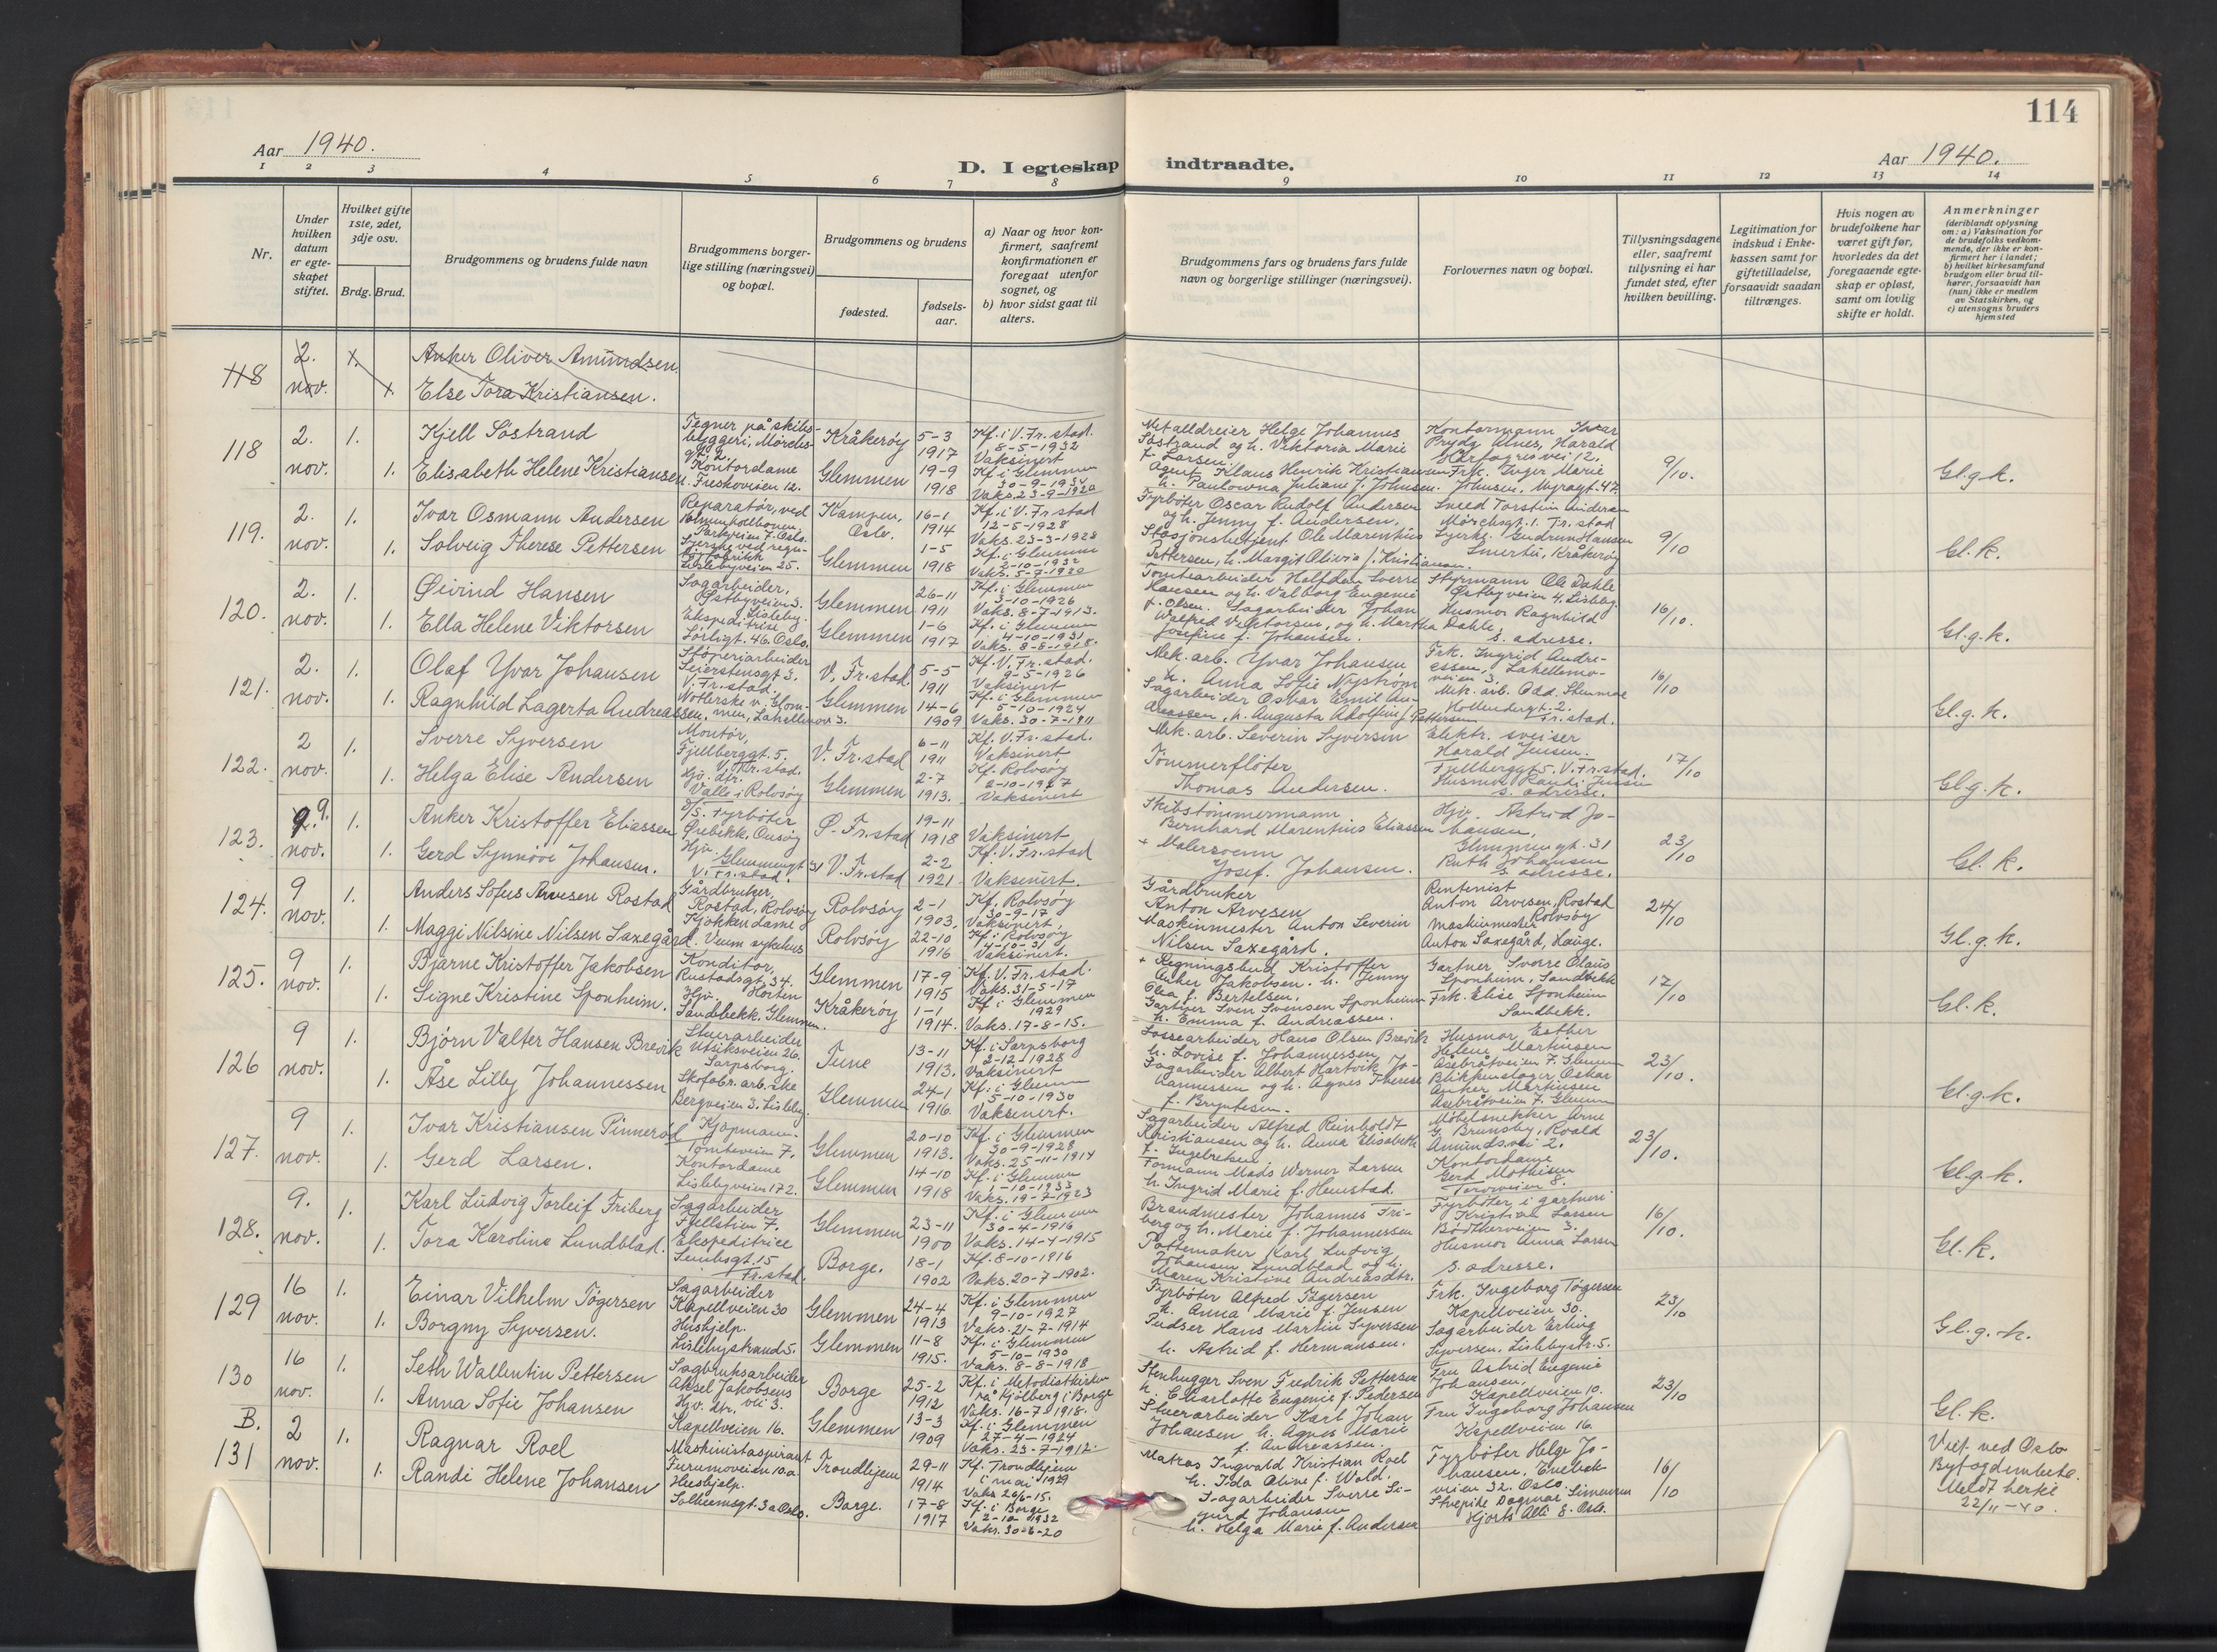 114
Aar 1940.
D. I egteskap indtraadte.
Aar 1940.
1 2 3 4 5 6 7 8 9 10 11 12 13 14
Nr.
Under hvilken datum er egteskapet stiftet.
Hvilket gifte 1ste, 2det, 3dje osv.
Brdg. Brud.
Brudgommens og brudens fulde navn
Brudgommens borgerlige stilling (næringsvei) og bopæl.
Brudgommens og brudens
fødested.
fødselsaar.
a) Naar og hvor konfirmert, saafremt konfirmationen er foregaat utenfor sognet, og
b) hvor sidst gaat til alters.
Brudgommens fars og brudens fars fulde navn og borgerlige stillinger (næringsvei).
Forlovernes navn og bopæl.
Tillysningsdagene eller, saafremt tillysning ei har fundet sted, efter hvilken bevilling.
Legitimation for indskud i Enkekassen samt for giftetilladelse, forsaavidt saadan tiltrænges.
Hvis nogen av brudefolkene har været gift før, hvorledes da det foregaaende egteskap er opløst, samt om lovlig skifte er holdt.
Anmerkninger
(deriblandt oplysning om: a) Vaksination for de brudefolks vedkommende, der ikke er konfirmert her i landet;
b) hvilket kirkesamfund brudgom eller brud tilhører, forsaavidt han (hun) ikke er medlem av Statskirken, og
c) utensogns bruders hjemsted
118 2. nov. Anker Oliver Amundsen
Else Tora Kristiansen.
118 2. nov. 1. Kjell Søstrand
Tegner på skibsbyggeri, Mørchsgt. 2.
Kråkerøy 5-3 1917
Kf. i V. Fr.stad. 8-5-1932 Vaksinert
Metalldreier Helge Johannes Søstrand og h. Viktoria Marie f. Larsen.
Kontormann
9/10.
Gl.g.k.
1. Elisabeth Helene Kristiansen
Kontordame Freskoveien 12.
Glemmen 19-9 1918
Kf. i Glemmen 30-9-1934 Vaks. 23-9-1920
Agent Henrik Kristiansen h. Juliane f. Johnsen.
Frk. Inger Marie Johnsen, Myragt. 47.
119. 2. nov. 1. Ivar Osmann Andersen
Reparatør, ved
Parkveien 7. Oslo.
Kampen, Oslo. 16-1 1914
Kf. i V. Fr.stad 12-5-1928 Vaks. 23-3-1928
Fyrbøter Oscar Rudolf Andersen og h. Jenny f. Andersen.
Torstein Andersen Mørchsgt. 1. Fr.stad
9/10
Gl. k.
1. Solveig Therese Pettersen
Lislebyveien 25.
Glemmen 1-5 1918
Kf. i Glemmen 2-10-1932 Vaks. 5-7-1920
Stasjonsbetjent Ole Marentius Pettersen, h. Margit Olivia f. Kristiansen.
Gudrun Hansen Kråkerøy
120. 2. nov. 1. Øivind Hansen
Sagarbeider, Østbyveien 3. Lisleby.
Glemmen 26-11 1911
Kf. i Glemmen 3-10-1926 Vaks. 8-7-1913.
Tomtearbeider Halfdan Sverre Hansen og h. Valborg Eugenie f. Olsen.
Styrmann Ole Dahle Østbyveien 4. Lisleby.
16/10.
Gl.g.k.
1. Ella Helene Viktorsen
Ekspeditrise Sørligt. 46. Oslo.
Glemmen 1-6 1917
Kf. i Glemmen 4-10-1931 Vaks. 8-8-1918.
Sagarbeider Johan Walfred Viktorsen, og h. Martha Josefine f. Johansen.
Husmor Ragnhild Dahle, s. adresse.
121. 2. nov. 1. Olaf Yvar Johansen
Støperiarbeider Seierstensgt 3. V. Fr.stad.
V. Fr.stad. 5-5 1911
Kf. V. Fr.stad. 9-5-1926 Vaksinert
Mek. arb. Yvar Johansen h. Anna Sofie Nystrøm
Frk. Ingrid Andreassen, Lahelle­moveien 3.
16/10
Gl.g.k.
1. Ragnhild Lagerta Andreassen
Lahellmov 3.
Glemmen 14-6 1909
Kf. i Glemmen 5-10-1924 Vaks. 30-7-1911
Sagarbeider Oskar Emil Andreassen, h. Augusta Adolfine f. Pettersen
Mek. arb. Odd Hollendergt. 2. Fr.stad.
122. 2 nov. 1. Sverre Syversen
Montør, Fjellberggt. 5. V. Fr.stad.
V. Fr.stad 6-11 1911
Kf. V. Fr.stad. Vaksinert
Mek. arb. Severin Syversen
Elektr. sveiser Harald Jensen. Fjellberggt 5. V. Fr.stad.
17/10
Gl.g.k.
1. Helga Elise Andersen
Hj. dtr. Valle i Rolvsøy
Glemmen 2-7 1913.
Kf. Rolvsøy 2-10-1927 Vaksinert
Tømmerfløter Thomas Andersen.
Husmor Randi Jensen s. adresse.
123. 9. nov. 1. Anker Kristoffer Eliassen
D/S. Fyrbøter Ørebekk, Onsøy
Ø. Fr.stad 19-11 1918
Vaksinert Kf. V. Fr.stad
Skibstømmermann Bernhard Marentius Eliassen
Hjv. Astrid Johansen, Glemmengt. 31
23/10
Gl. k.
1. Gerd Synnøve Johansen.
Hjv. Glemmengt 31 V. Fr.stad.
V. Fr.stad 2-2 1921
Vaksinert.
+ Malersvenn Josef. Johansen.
Ruth Johansen s. adresse.
124. 9 nov. 1. Anders Sofus Arvesen Rostad
Gårdbruker, Rostad, Rolvsøy
Rolvsøy 2-1 1903.
Kf. Rolvsøy 30-9-17 Vaksinert,
Gårdbruker Anton Arvesen
Rentenist Anton Arvesen, Rostad Rolvsøy
24/10
Gl.g.k.
1. Maggi Nilsine Nilsen Saxegård.
Kjøkkendame Veum sykehus
Rolvsøy 22-10 1916
Kf. i Rolvsøy 4-10-31 Vaksinert.
Maskinmester Anton Severin Nilsen Saxegård.
Maskinmester Anton Saxegård, Hauge.
125. 9 nov. 1. Bjarne Kristoffer Jakobsen
Konditor, Rustadsgt. 34. Horten
Glemmen 17-9 1915
Kf. V. Fr.stad. Vaks. 31-5-17
+ Regningsbud Kristoffer Anker Jakobsen. h. Jenny Olea f. Bertelsen.
Gartner Sverre Olaus Sponheim, Sandbekk
17/10
Gl. k.
1. Signe Kristine Sponheim.
Hjv. Sandbekk. Glemmen.
Kråkerøy 1-1 1914.
Kf. i Glemmen 1929 Vaks. 17-8-15.
Gartner Sven Svensen Sponheim h. Emma f. Andreassen.
Frk. Elise Sponheim Sandbekk.
126 9 nov. 1. Bjørn Valter Hansen Brevik
Stuerarbeider Utsiksveien 26. Sarpsborg.
Tune 13-11 1913.
Kf. i Sarpsborg 2-12-1928 Vaksinert
Fossearbeider Hans Olsen Brevik h. Lovise f. Johannessen
Husmor Esther Helene Martinsen Åsebråtveien 7. Glemmen
23/10.
Gl.g.k.
1. Åse Lilly Johannessen
Skofabr. arb.ske Bergveien 3. Lisleby.
Glemmen 24-1 1916.
Kf. i Glemmen 5-10-1930 Vaksinert.
Sagarbeider Albert Hartvik Johannessen og h. Agnes Therese f. Bryntesen.
Blikkenslager Oskar Anker Martinsen Åsebråtveien 7. Glemmen
127. 9 nov. 1. Ivar Kristiansen Pinnerød
Kjøpmann. Tomteveien 7.
Glemmen 20-10 1913.
Kf. i Glemmen 30-9-1928 Vaks. 25-11-1914
Sagarbeider Alfred Reinholdt Kristiansen og h. Anna Elisabeth f. Ingebretsen
Møbelsnekker Arne G. Brunsby, Roald Amundsvei 2.
23/10.
Gl.g.k.
1. Gerd Larsen.
Kontordame Lislebyveien 172.
Glemmen 14-10 1918
Kf. i Glemmen 1-10-1933 Vaks. 19-7-1923
Formann Mads Werner Larsen h. Ingrid Marie f. Hemstad.
Kontordame Gerd Mathisen
128. 9. nov. 1. Karl Ludvig Torleif Friberg
Sagarbeider Fjellstien 7.
Glemmen 23-11 1900
Kf. i Glemmen 30-4-1916 Vaks. 14-4-1915
Brandmester Johannes Friberg og h. Marie f. Johannessen
Fyrbøter i gartneri Kristian Larsen Bødkerveien 3.
16/10.
Gl. k.
1. Tora Karoline Lundblad.
Ekspeditrice 15 Fr.stad.
Borge. 18-1 1902
Kf. 8-10-1916 Vaks. 20-7-1902.
Pottemaker Karl Ludvig Johansen Lundblad og h. Maren Kristine Andreasdtr.
Husmor Anna Larsen s. adresse.
129 16 nov. 1. Einar Vilhelm Tøgersen
Sagarbeider Kapellveien 30
Glemmen 24-4 1913
Kf. i Glemmen 9-10-1927 Vaks. 21-7-1914
Fyrbøter Alfred Tøgersen h. Anna Marie f. Jensen
Frk. Ingeborg Tøgersen Kapellveien 30.
23/10
Gl.g.k.
1. Borgny Syversen.
Hushjelp. Lislebystrand 5.
Glemmen 11-8 1915.
Kf. i Glemmen 5-10-1930 Vaks. 8-8-1918
Pudser Hans Martin Syversen h. Astrid f. Hermansen.
Sagarbeider Erling Syversen. Lislebystr. 5.
130 16 nov. 1. Seth Wallentin Pettersen
Sagbruksarbeider Aksel Jakobsens vei 3.
Borge 25-2 1912
Kf. i Metodistkirken på Kjølberg i Borge Vaks. 16-7-1918.
Stenhugger Sven Fredrik Pettersen h. Charlotte Eugenie f. Pedersen
Fru Astrid Eugenie Johansen, Kapellveien 10.
23/10
Gl. k.
1. Anna Sofie Johansen
Hjv. dtr. Kapellveien 16.
Glemmen 13-3 1909
Kf. i Glemmen 27-4-1924 Vaks. 23-7-1912.
Stuerarbeider Karl Johan Johansen h. Agnes Marie f. Andreassen.
Fru Ingeborg Johansen Kapellveien 16
B. 131 2 nov. 1. Ragnar Roel
Maskinistaspirant Furumoveien 10.a.
Trondhjem 29-11 1914
Kf. Trondhjem i mai 1929 Vaks 20/6-15.
Matros Ingvald Kristian Roel h. Ida Oline f. Wold.
Fyrbøter Helge Johansen, Enebakveien 32. Oslo.
16/10
Viet ved Oslo Byfogdembete. Meldt herke 22/11-40.
1. Randi Helene Johansen
Hushjelp. Solheimsgt. 3 a Oslo.
Borge. 17-8 1917
Kf. i Borge 2-10-1932 Vaks. 30-6-20
Sagarbeider Sverre Sigurd Johansen h. Helga Marie f. Andersen
Dagmar Simensen Hjorts Alle 8. Oslo.